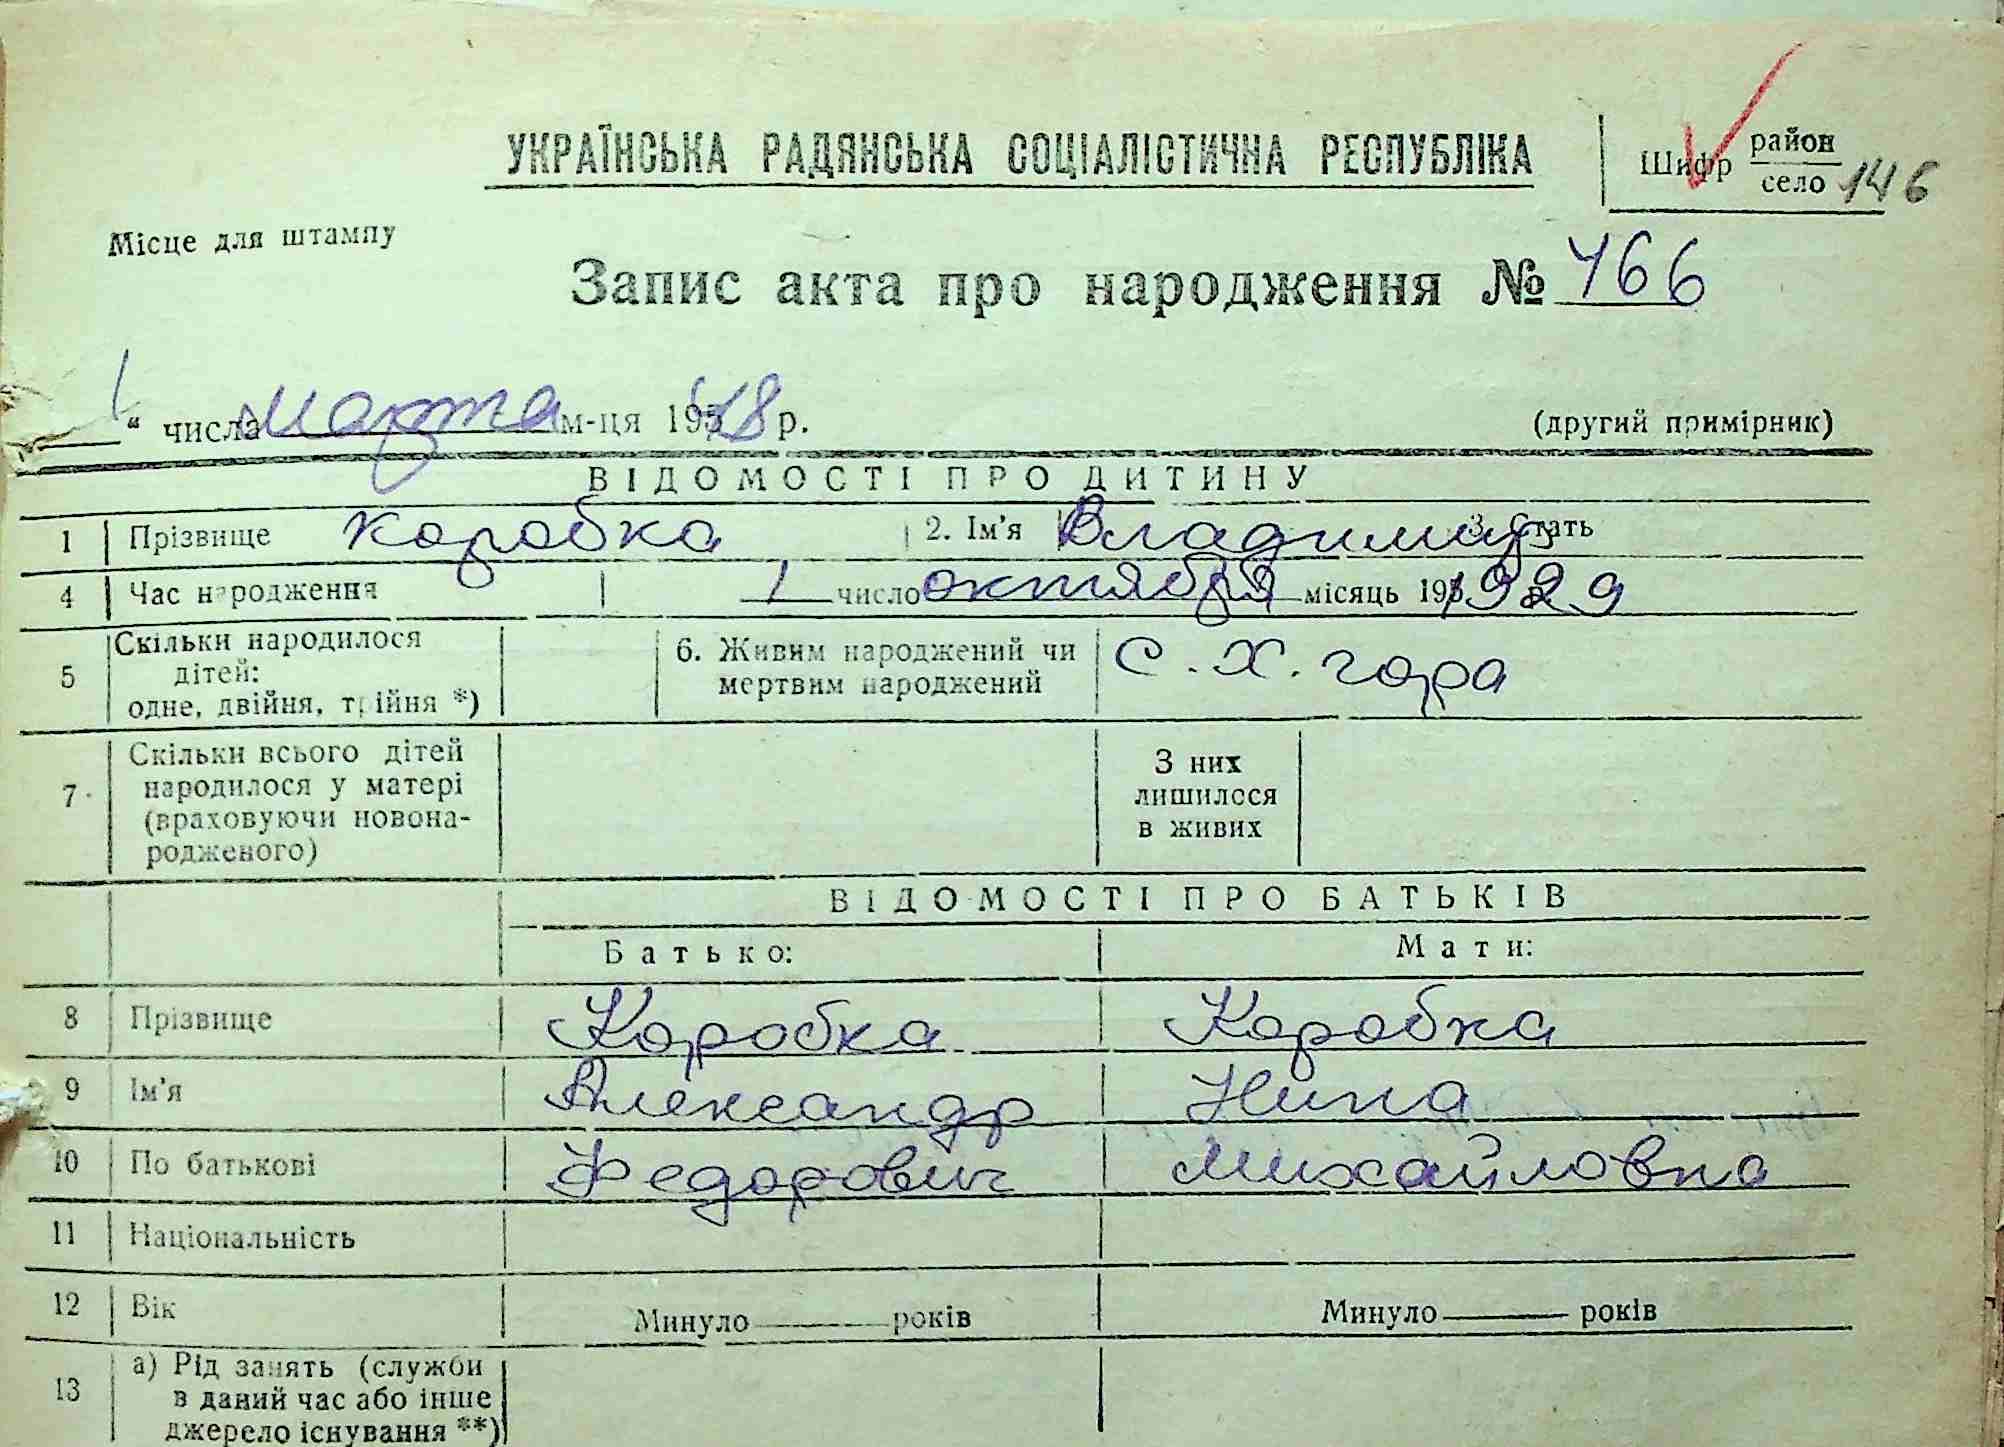 УКРАЇНСЬКА РАДЯНСЬКА СОЦІАЛІСТИЧНА РЕСПУБЛІКА
Шифр район
село 146
Місце для штампу
Запис акта про народження № 466
1 " числа марта м-ця 195 48 р. (другий примірник)
ВІДОМОСТІ ПРО ДИТИНУ
1 Прізвище Коробка 2. Ім'я Владимир 3. Стать
4 Час народження 1 число октября місяць 195 1929
5 Скільки народилося дітей: одне, двійня, трійня *) 6. Живим народжений чи мертвим народжений с. Х. гора
7 Скільки всього дітей народилося у матері (враховуючи новона-родженого) З них лишилося в живих
ВІДОМОСТІ ПРО БАТЬКІВ
Батько: Мати:
8 Прізвище Коробка Коробка
9 Ім'я Александр Нина
10 По батькові Федорович Михайловна
11 Національність
12 Вік Минуло років Минуло років
13 а) Рід занять (служби в даний час або інше джерело існування **)